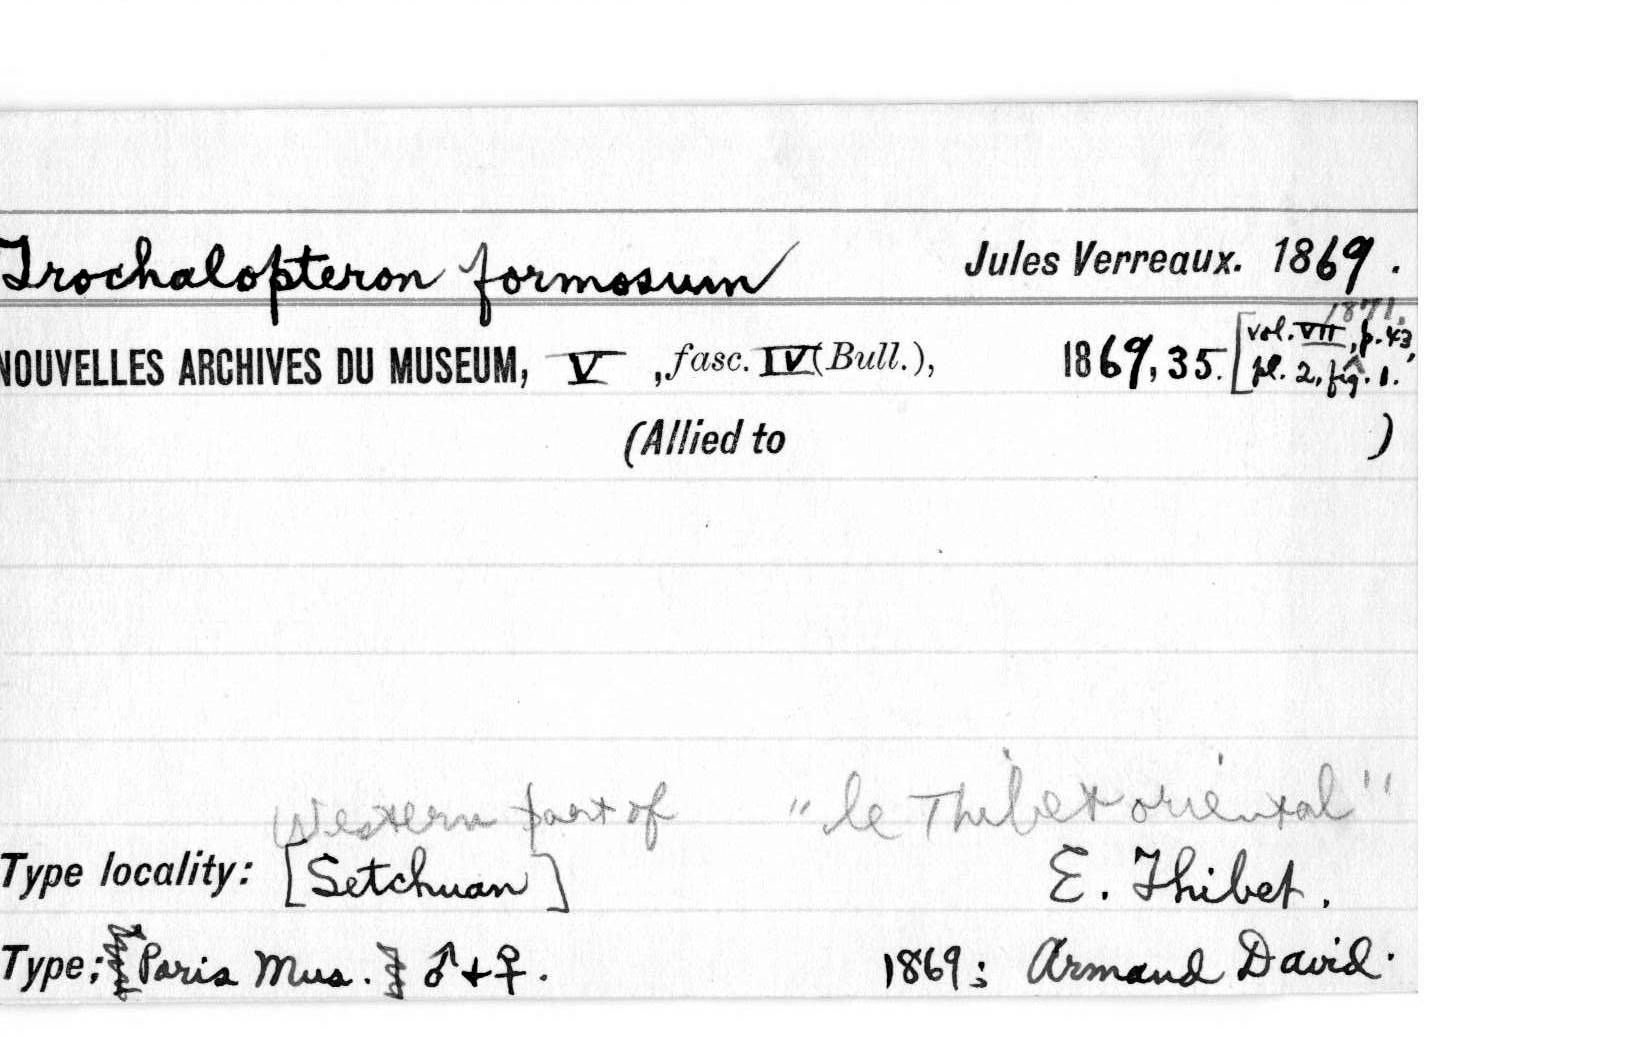 Trochalopteron formosum Jules Verreaux. 1869.
1871,
NOUVELLES ARCHIVES DU MUSEUM, V, fasc. IV (Bull.), 1869, 35. [vol. VII, p. 43,
pl. 2, fig. 1.
(Allied to )
Western part of "le Thibet oriental"
Type locality: [Setchuan] E. Thibet.
Type: Paris Mus. ♂ + ♀. 1869; Armand David.